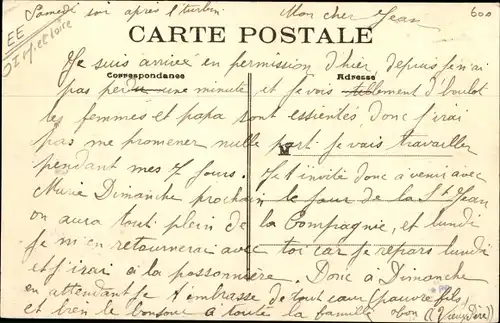 Samedi soir après l'turbin
Mon cher Jean
600
EE
CARTE POSTALE
Je suis arrivé en permission d'hier, depuis je n'ai
Correspondance
Adresse
pas perdu une minute et je vois tellement d'boulot
les femmes et papa sont essientes donc j'irai
pas me promener nulle part je vais travailler
pendant mes 7 jours. Je t'invite donc à venir avec
Marie Dimanche prochain le jour de la St Jean
on aura tout plein de la Compagnie, et lundi
je m'en retournerai avec toi car je repars lundi
et j'irai à la possonnière. Donc à Dimanche
en attendant je t'embrasse de tout cœur (pauvre fils)
et bien le bonsoir à toute la famille